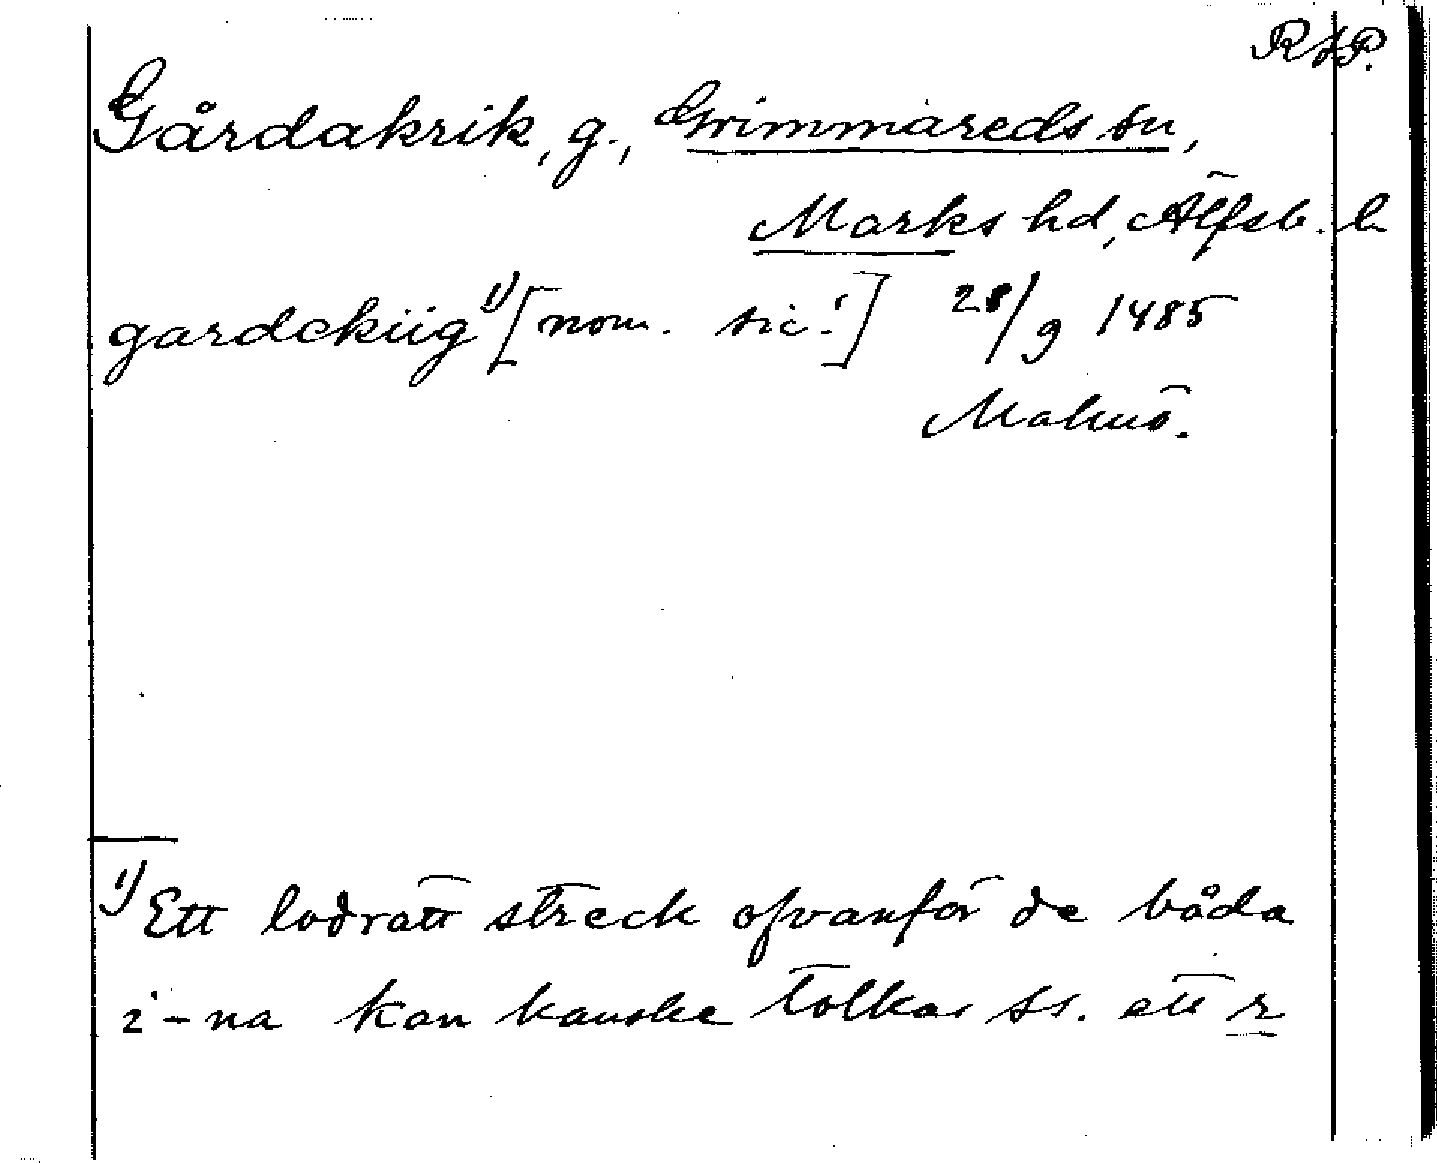 RAP.
Gårdakrik, g., Grimmareds sn,
Marks hd, Älfsb. l.
gardekiig ¹⁾ [nom. sic!] 28/9 1485
Malmö.
¹⁾ Ett lodrätt streck ofvanför de båda
i-na kan kanske tolkas ss. ett r